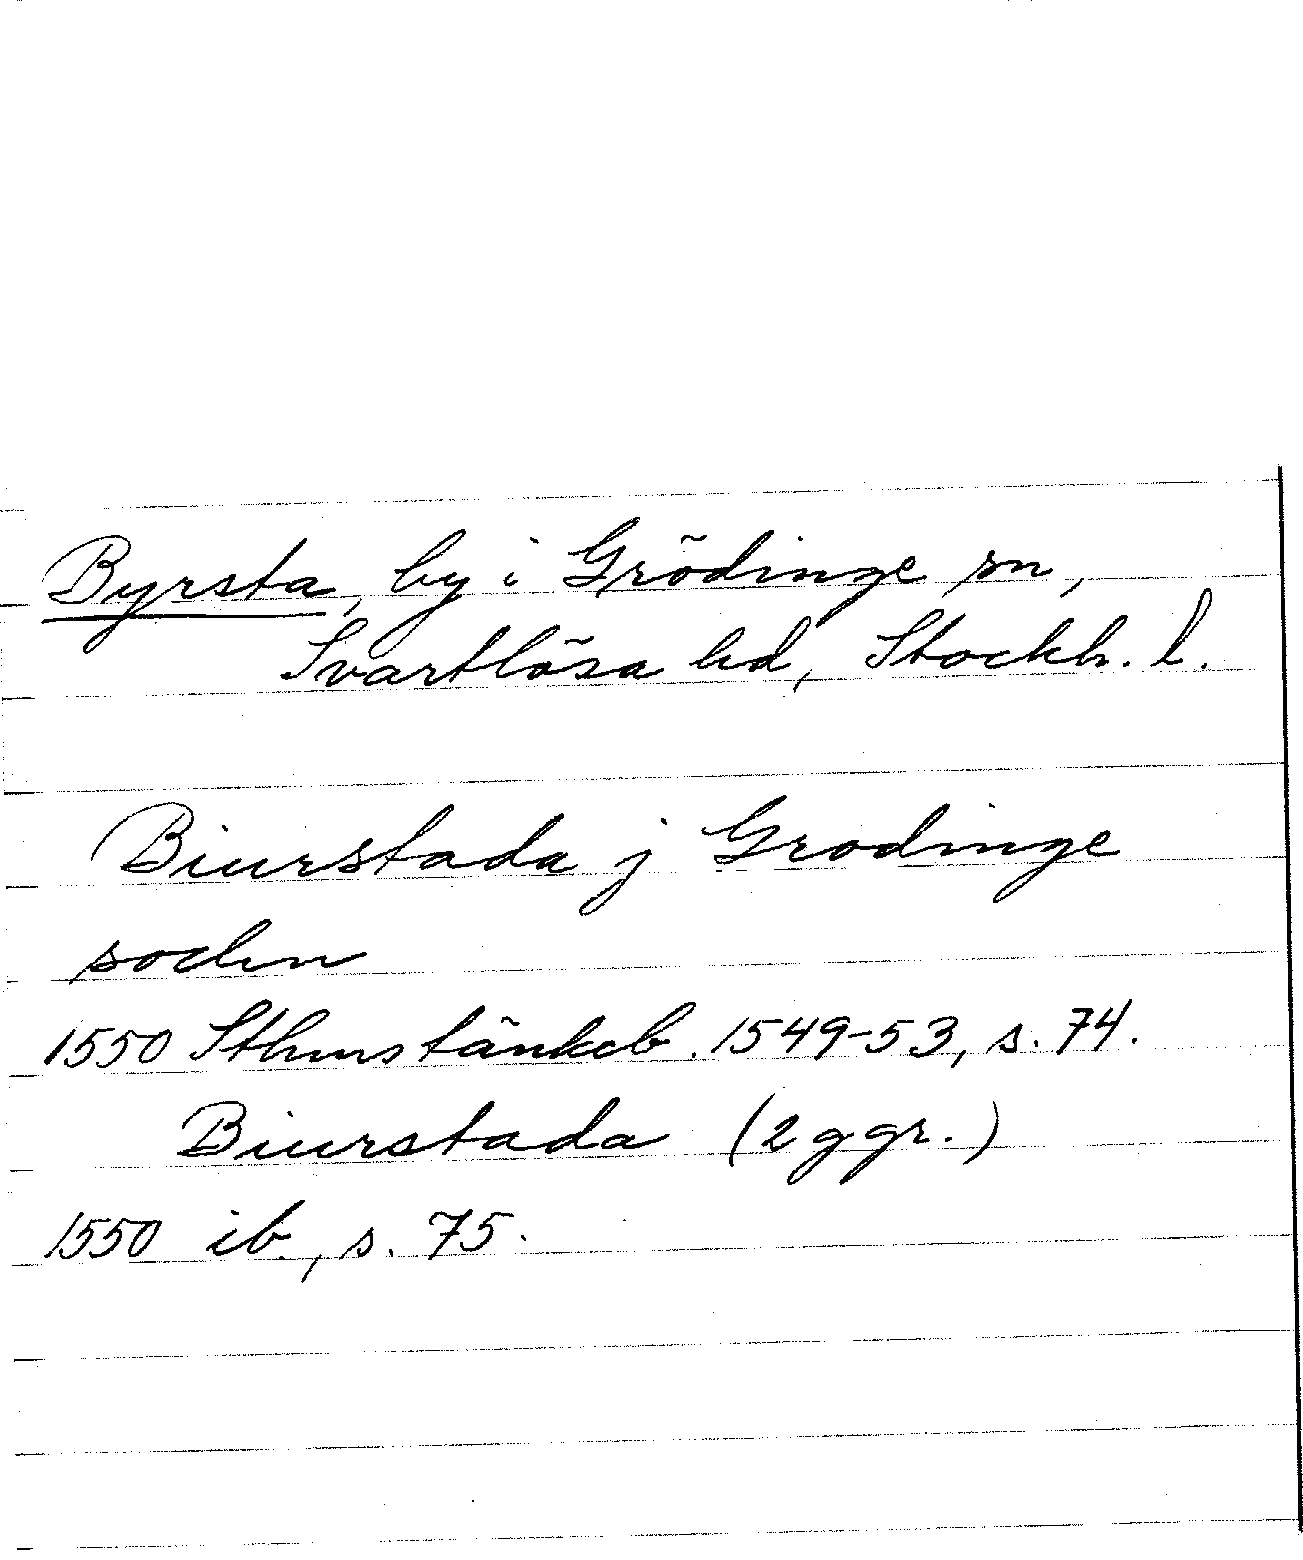 Byrsta, by i Grödinge sn,
Svartlösa hd, Stockh. l.
Biurstada j Grodinge
sochn
1550 Sthms tänkeb. 1549-53, s. 74.
Biurstada (2 ggr.)
1550 ib., s. 75.